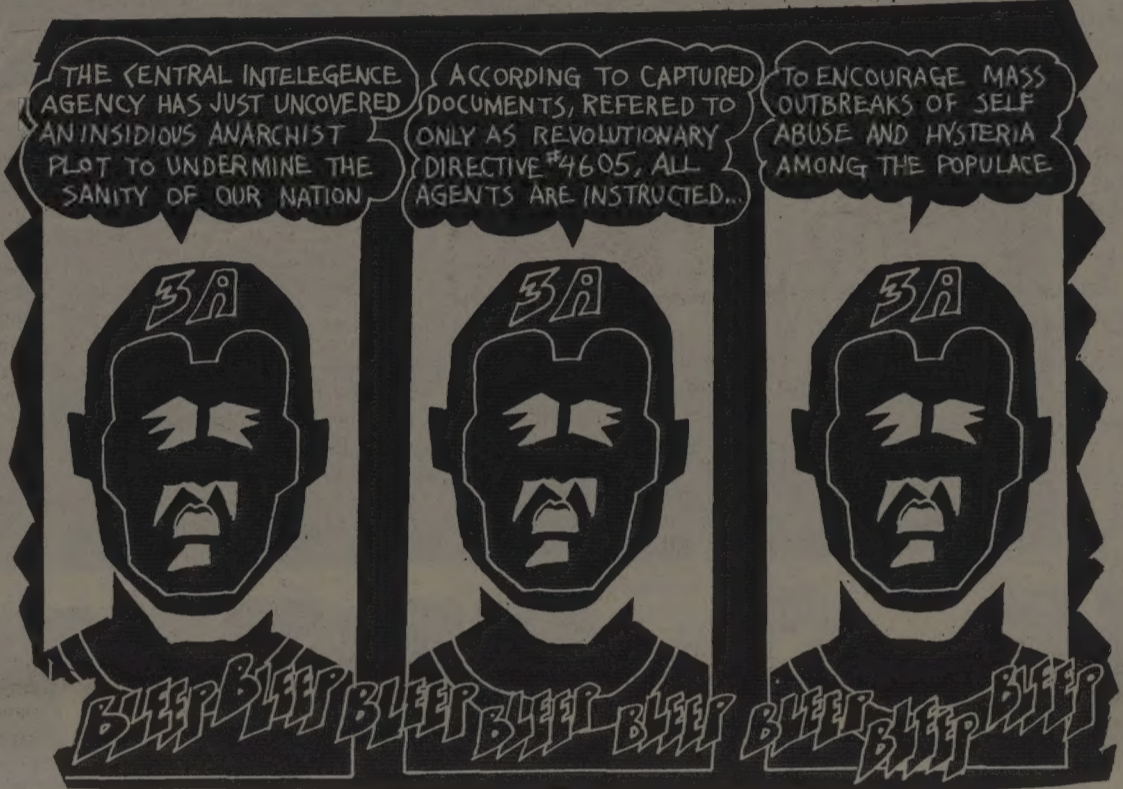 THE CENTRAL INTELEGENCE
AGENCY HAS JUST UNCOVERED
AN INSIDIOUS ANARCHIST
PLOT TO UNDERMINE THE
SANITY OF OUR NATION
ACCORDING TO CAPTURED
DOCUMENTS, REFERED TO
ONLY AS REVOLUTIONARY
DIRECTIVE #4605, ALL
AGENTS ARE INSTRUCTED...
TO ENCOURAGE MASS
OUTBREAKS OF SELF
ABUSE AND HYSTERIA
AMONG THE POPULACE
3A
3A
3A
BLEEP BLEEP
BLEEP BLEEP BLEEP
BLEEP BLEEP BLEEP